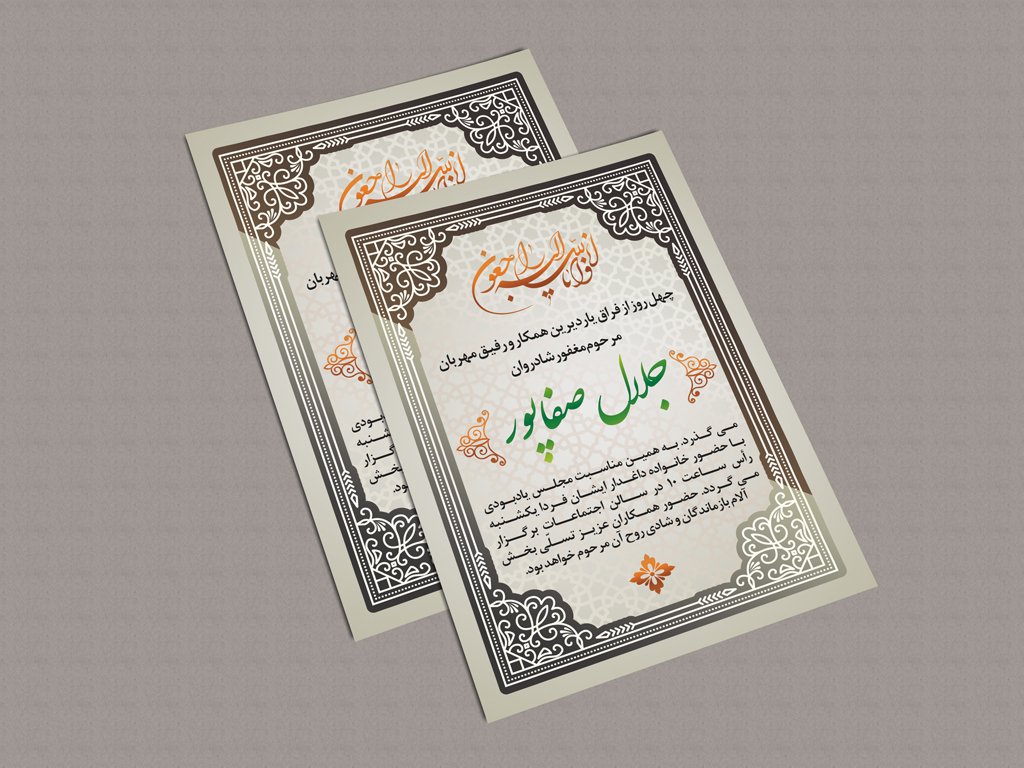 انا لله و انا الیه راجعون
چهل روز از فراق یار دیرین همکار و رفیق مهربان
مرحوم مغفور شادروان
جلال صفاپور
می گذرد. به همین مناسبت مجلس یادبودی
با حضور خانواده داغدار ایشان فردا یکشنبه
رأس ساعت ۱۰ در سالن اجتماعات برگزار
می گردد. حضور همکاران عزیز تسلّی بخش
آلام بازماندگان و شادی روح آن مرحوم خواهد بود.
انا لله و انا الیه راجعون
مهربان
یادبودی
یکشنبه
برگزار
بخش